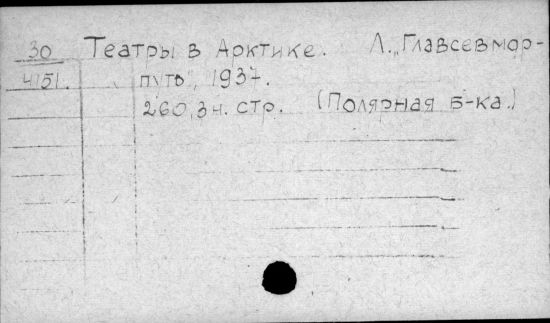 30 Театры в Арктике. Л. „Главсевмор-
4151. путь", 1937.
260, 3 н. стр. (Полярная б-ка.)